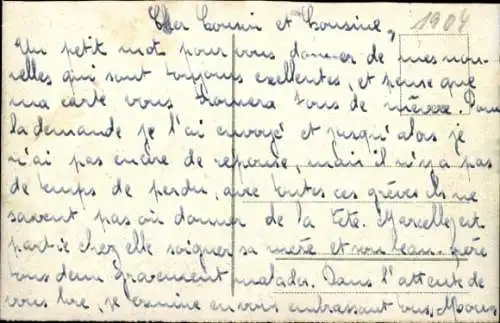 Cher Cousin et Cousine,
1904
Un petit mot pour vous donner de mes nou-
velles qui sont toujours exellentes, et pense que
ma carte vous trouvera tous de mème. Pour
la demande je l'ai envoyé et jusqu'alors je
n'ai pas encore de reponse, mais il n'y a pas
de temps de perdu, avec toutes ces grèves ils ne
savent pas où donner de la tete. Marcelle est
partie chez elle soigner sa mère et son beau-père
tous deux gravement malades. Dans l'attente de
vous lire, je termine en vous embrassant tous,